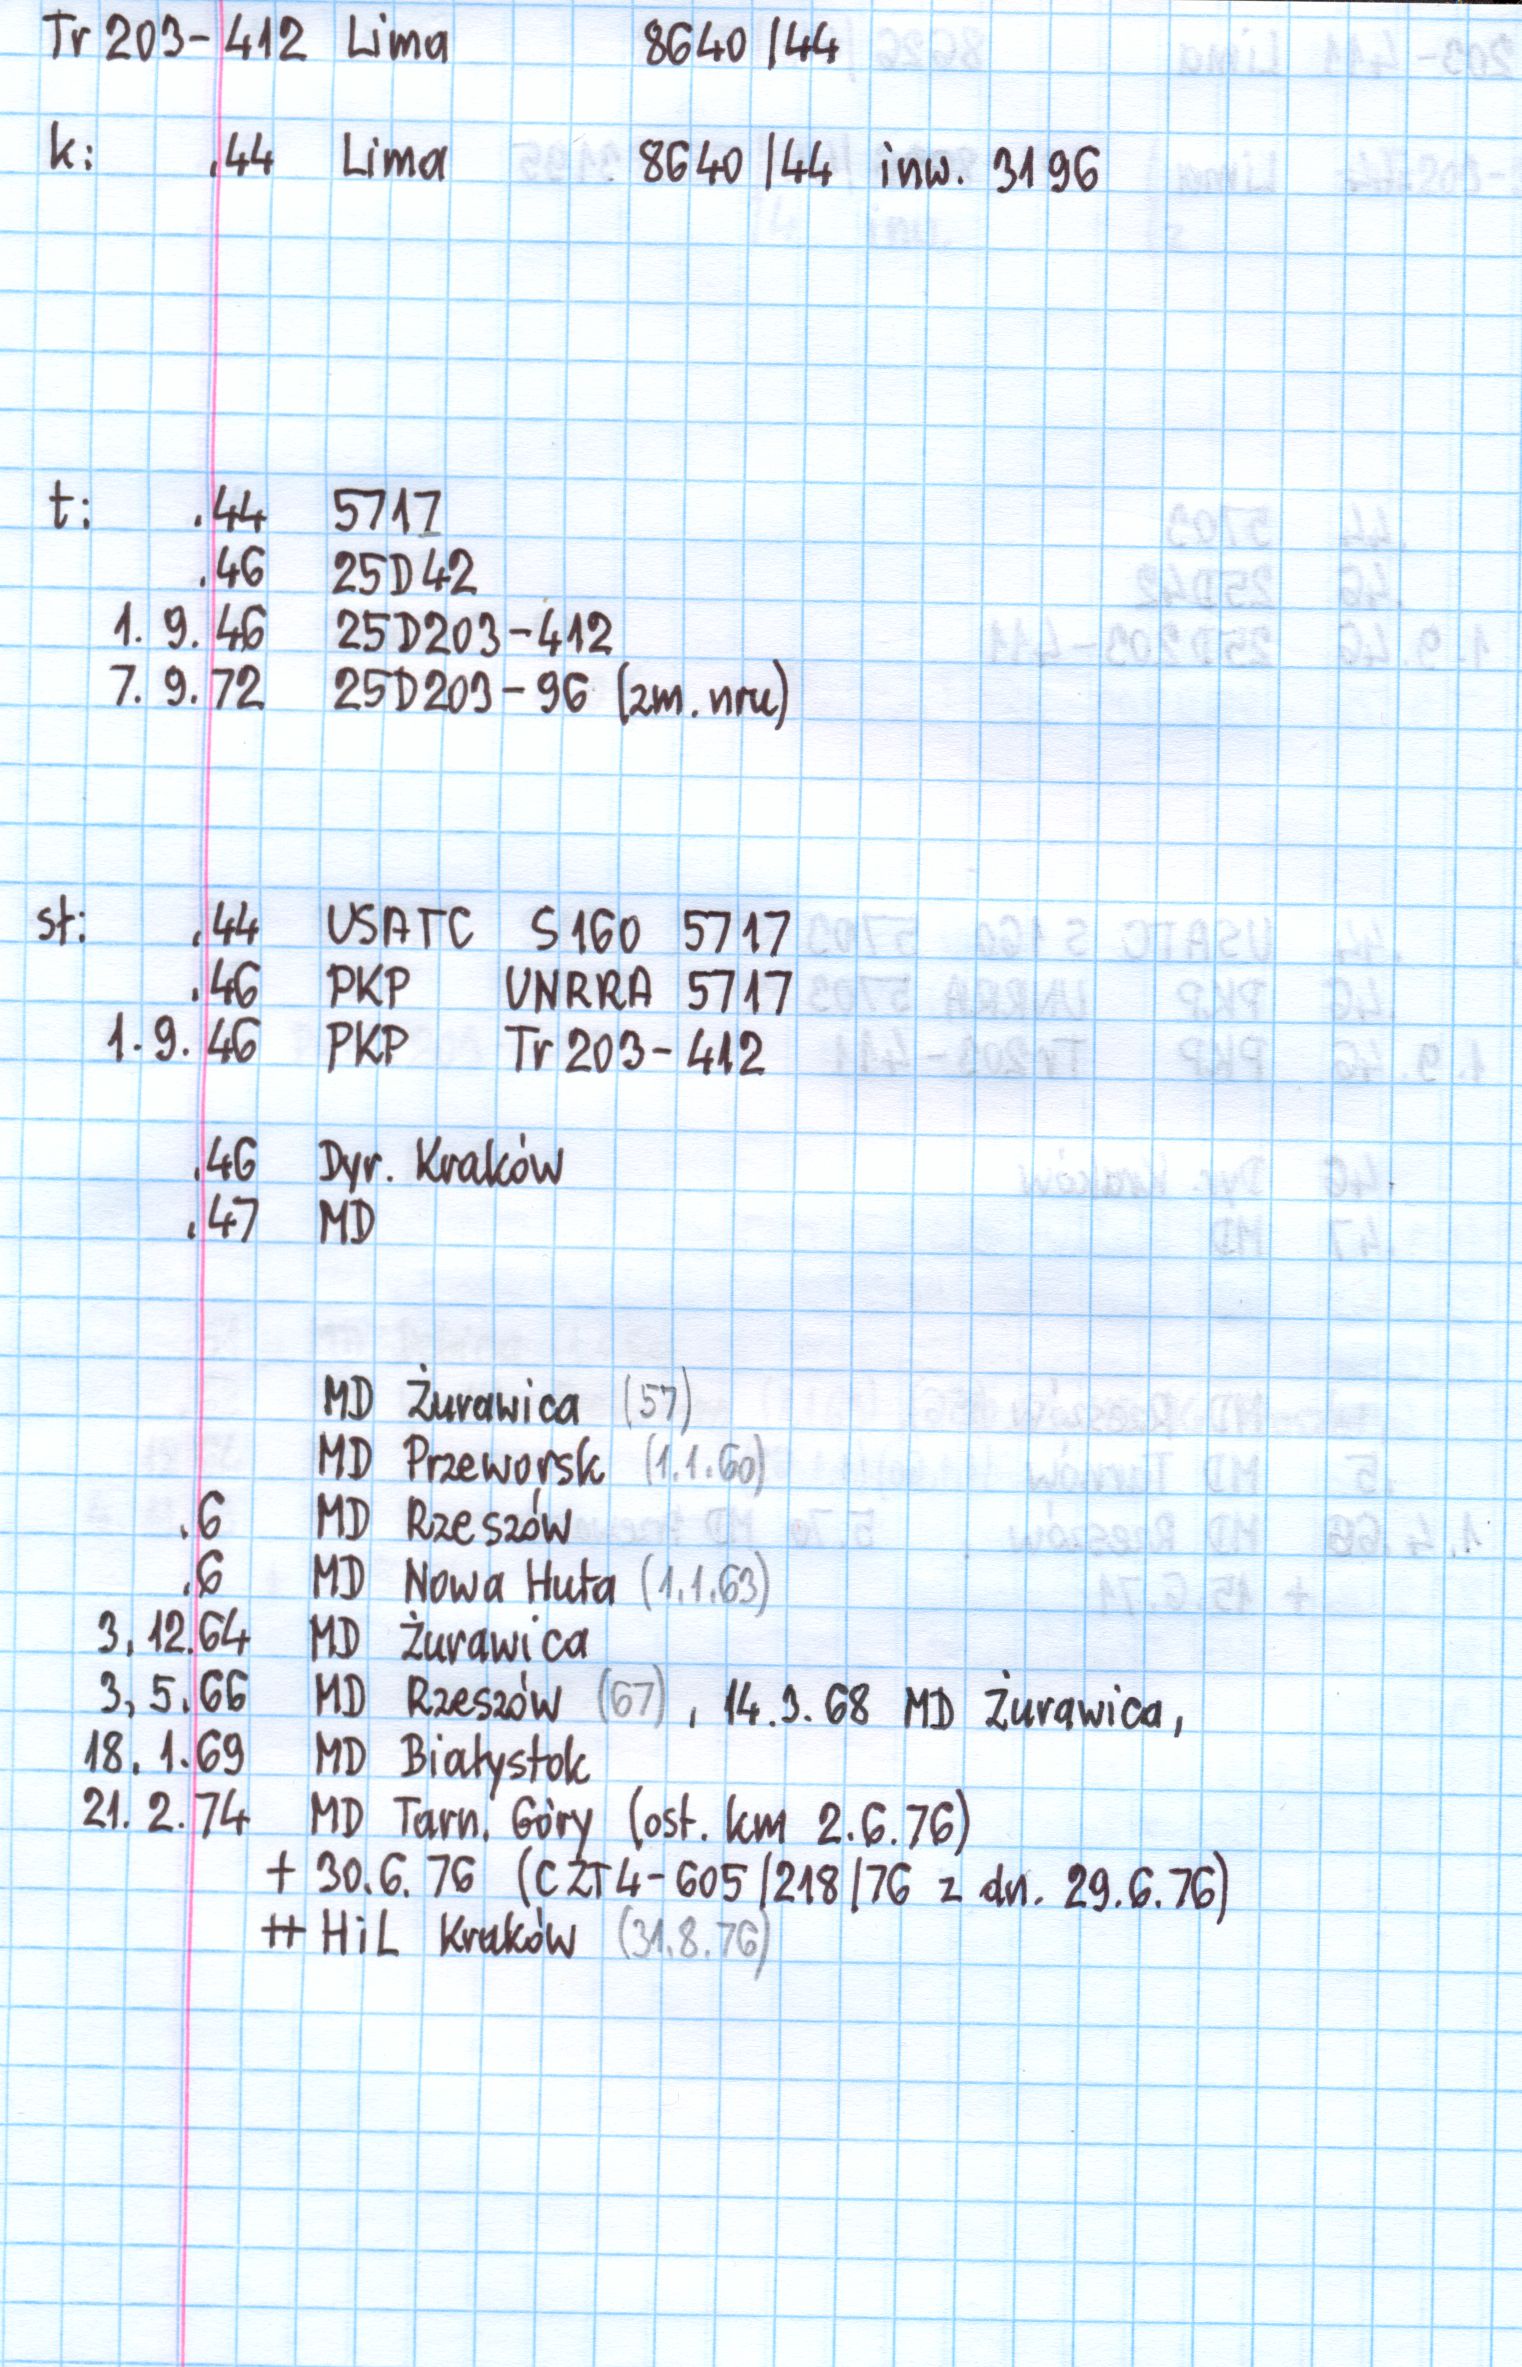 Tr 203-412 Lima 8640/44
k: .44 Lima 8640/44 inw. 3196
t: .44 5717
.46 25D42
1. 9. 46 25D203-412
7. 9. 72 25D203-96 (zm. nru)
st: .44 USATC S160 5717
.46 PKP UNRRA 5717
1. 9. 46 PKP Tr 203-412
.46 Dyr. Kraków
.47 MD
MD Żurawica (57)
MD Przeworsk (1.1.60)
.6 MD Rzeszów
.6 MD Nowa Huta (1.1.63)
3. 12. 64 MD Żurawica
3. 5. 66 MD Rzeszów (67), 14.3.68 MD Żurawica,
18. 1. 69 MD Białystok
21. 2. 74 MD Tarn. Góry (ost. km 2.6.76)
+ 30.6.76 (CZT4-605/218/76 z dn. 29.6.76)
++ HiL Kraków (31.8.76)